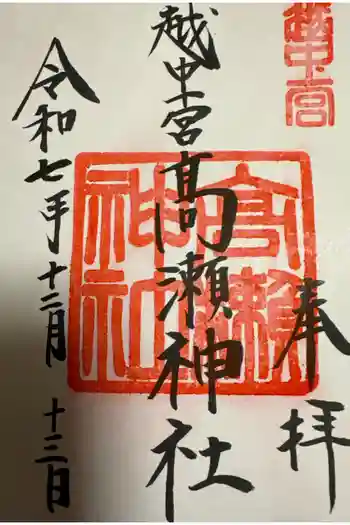 越中宮
奉拝
越中宮高瀬神社
高瀬神社
令和七年十二月十三日